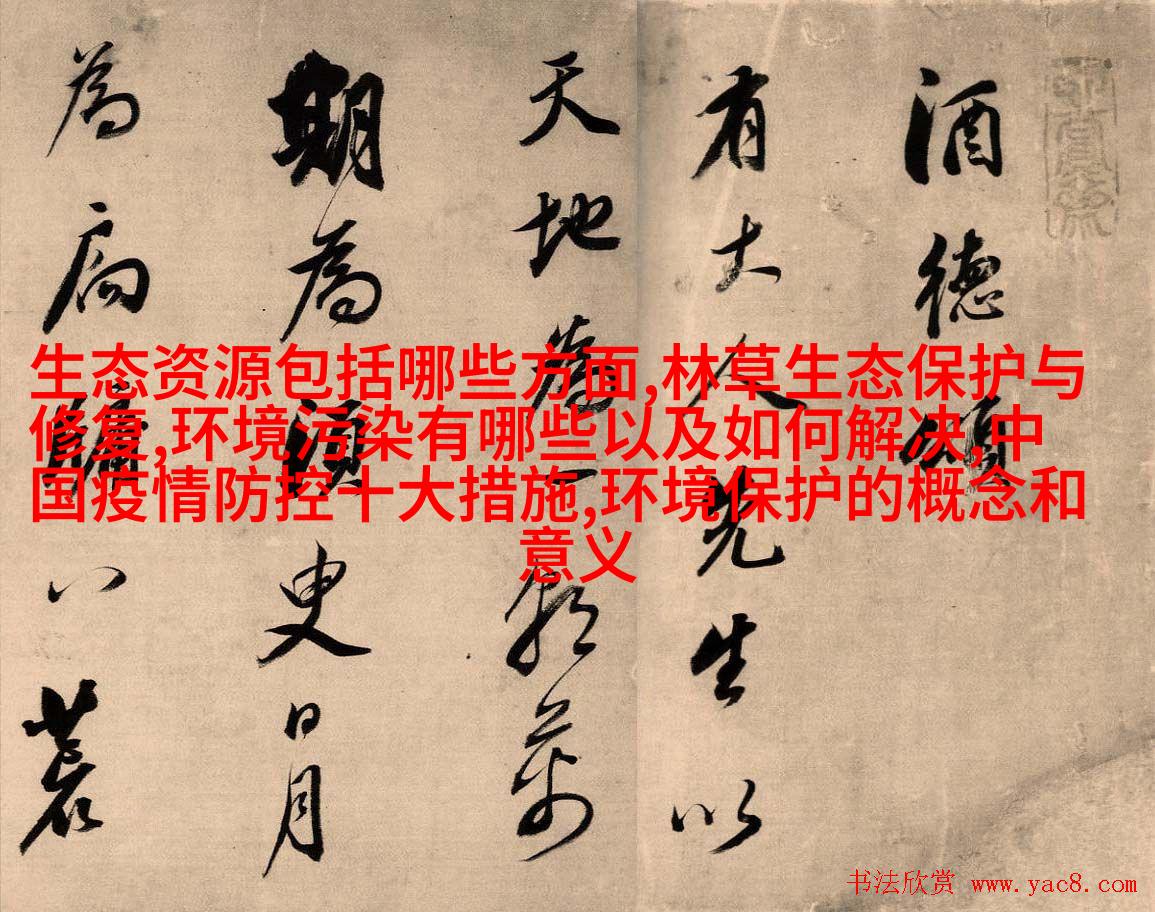 酒德頌
有大人先生以
天地為一朝萬
期為須臾日月
為扃牖八荒
生态资源包括哪些方面,林草生态保护与
修复,环境污染有哪些以及如何解决,中
国疫情防控十大措施,环境保护的概念和
意义
书法欣赏 www.yac8.com